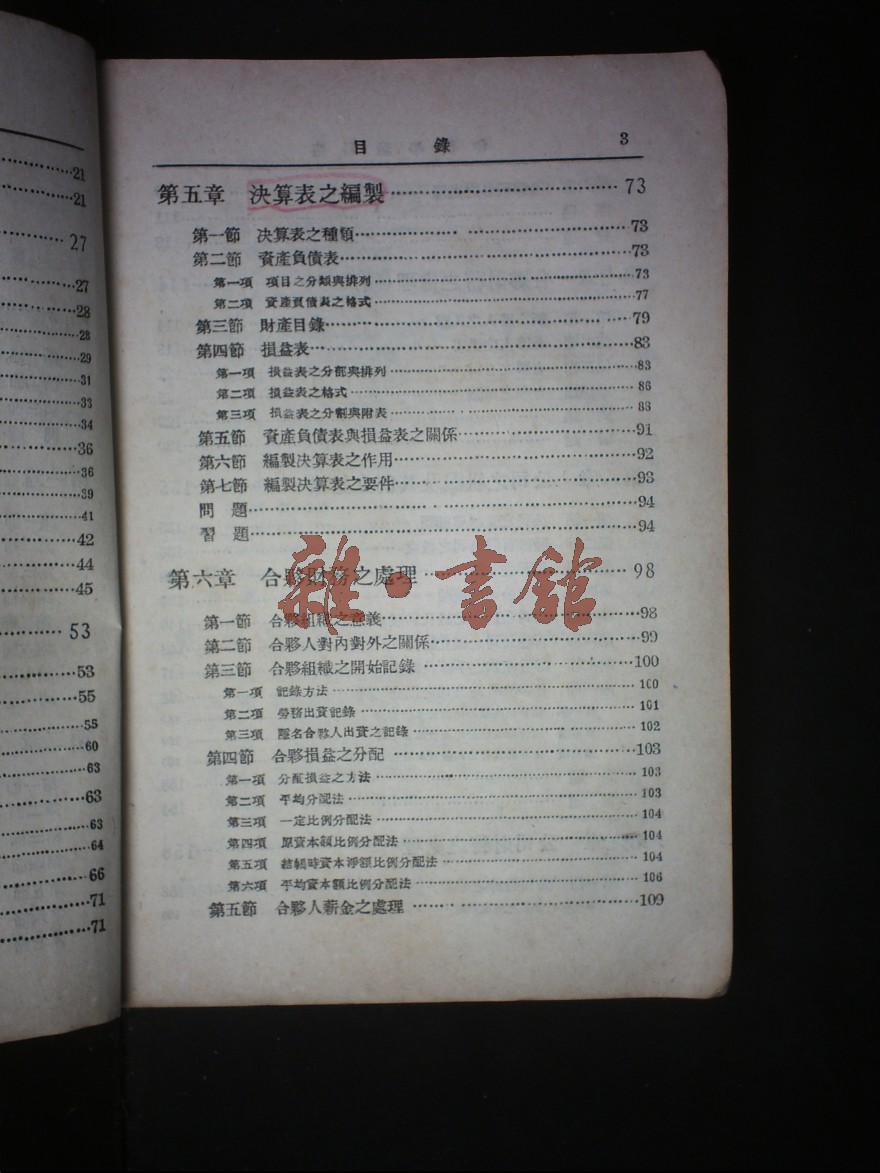 21
21
27
27
28
28
29
31
33
34
36
36
39
41
42
44
45
53
53
55
55
60
63
63
63
64
66
71
71
目錄 3
第五章 決算表之編製 73
第一節 決算表之種類 73
第二節 資產負債表 73
第一項 項目之分類與排列 73
第二項 資產負債表之格式 77
第三節 財產目錄 79
第四節 損益表 83
第一項 損益表之分部與排列 83
第二項 損益表之格式 86
第三項 損益表之分割與附表 88
第五節 資產負債表與損益表之關係 91
第六節 編製決算表之作用 92
第七節 編製決算表之要件 93
問題 94
習題 94
第六章 合夥財務之處理 98
雜·書館
第一節 合夥組織之意義 98
第二節 合夥人對內對外之關係 99
第三節 合夥組織之開始記錄 100
第一項 記錄方法 100
第二項 勞務出資記錄 101
第三項 隱名合夥人出資之記錄 102
第四節 合夥損益之分配 103
第一項 分配損益之方法 103
第二項 平均分配法 103
第三項 一定比例分配法 104
第四項 原資本額比例分配法 104
第五項 結帳時資本淨額比例分配法 104
第六項 平均資本額比例分配法 106
第五節 合夥人薪金之處理 109